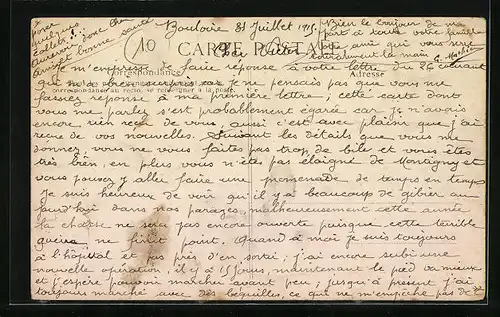 poser
quelques
collets!
Au revoir donc cher
ami et bonne santé
10
Bouloire 31 Juillet 1915
CARTE POSTALE
Cher Victor
Bien le bonjour de ma
part à toute votre famille
votre ami qui vous serre
cordialement la main
Correspondance
Adresse
Je m'empresse de faire réponse à votre lettre du 26 courant
qui m'a bien surpris car je ne pensais pas que vous me
correspondance au recto, se renseigner à la poste
fassiez réponse à ma première lettre; cette carte dont
vous me parlez s'est probablement égarée car je n'avais
encore rien reçu de vous, aussi c'est avec plaisir que j'ai
reçu de vos nouvelles. Suivant les détails que vous me
donnez, vous ne vous faites pas trop de bile et vous êtes
très bien, en plus vous n'êtes pas éloigné de Montigny et
vous pouvez y aller faire une promenade de temps en temps
Je suis heureux de voir qu'il y a beaucoup de gibier au
jourd'hui dans nos parages, malheureusement cette année
la chasse ne sera pas encore ouverte puisque cette terrible
guerre ne finit point. Quand à moi je suis toujours
à l'hôpital et pas près d'en sortir; j'ai encore subi une
nouvelle opération, il y a 15 jours, maintenant le pied va mieux
et j'espère pouvoir marcher avant peu; jusqu'à présent j'ai
toujours marché avec des béquilles, ce qui ne m'empêche pas de